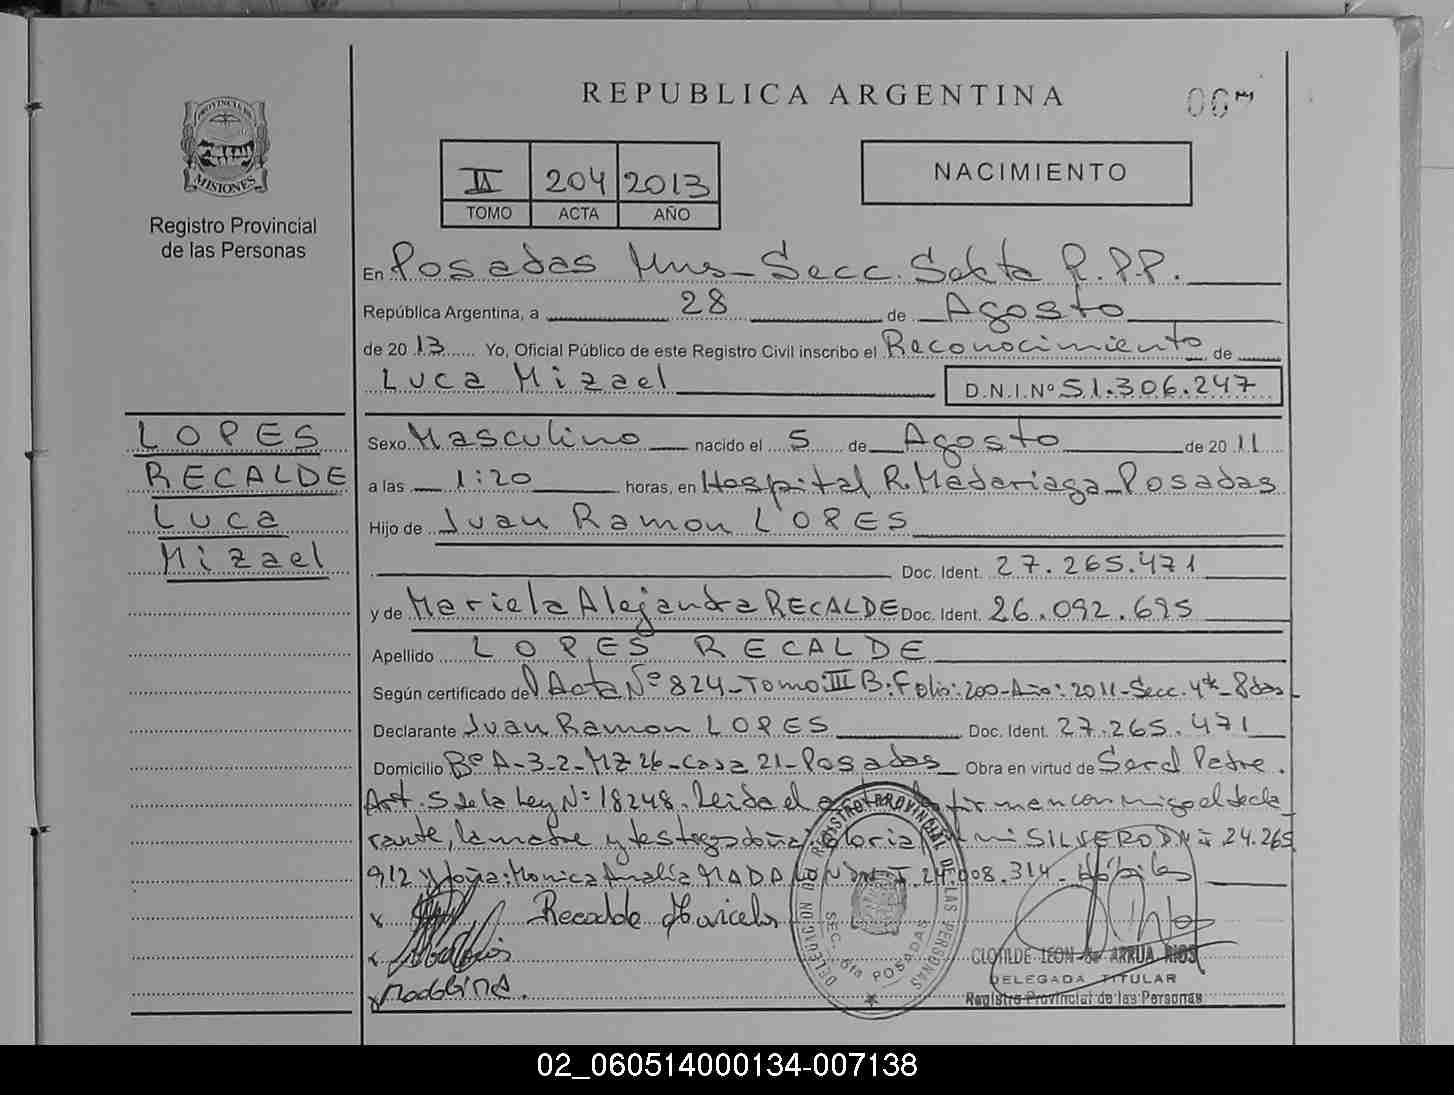 REPUBLICA ARGENTINA
PROVINCIA DE
MISIONES
Registro Provincial
de las Personas
204 2013
TOMO ACTA AÑO
NACIMIENTO
En Posadas Mns - Secc. Sexta R.P.P.
República Argentina, a 28 de Agosto
de 2013 Yo, Oficial Público de este Registro Civil inscribo el Reconocimiento de
Luca Mizael D.N.I.Nº 51.306.247
LOPES
RECALDE
Luca
Mizael
Sexo Masculino nacido el 5 de Agosto de 2011
a las 1:20 horas, en Hospital R. Madariaga - Posadas
Hijo de Juan Ramon LOPES
Doc. Ident. 27.265.471
y de Mariela Alejandra RECALDE Doc. Ident. 26.092.695
Apellido LOPES RECALDE
Según certificado del Acta Nº 824 - Tomo: III B: Folio: 200 - Año: 2011 - Secc. 4ta - Pdas
Declarante Juan Ramon LOPES Doc. Ident. 27.265.471
Domicilio Bº A-3-2-MZ 26 - Casa 21 - Posadas Obra en virtud de Ser el Padre.
Art. 5 de la Ley Nº 18248. Leida el firman conmigo el decla
rante, la madre y testigos doña: Gloria SILVERO DNI 24.265
912 y doña: Monica Analía 24.008.314 - Hábiles
Recalde Maricela
REGISTRO PROVINCIAL DE LAS PERSONAS
DELEGACION
SEC. 6ta POSADAS
CLOTILDE LEON de ARRUA RIOS
DELEGADA TITULAR
Registro Provincial de las Personas
02_060514000134-007138